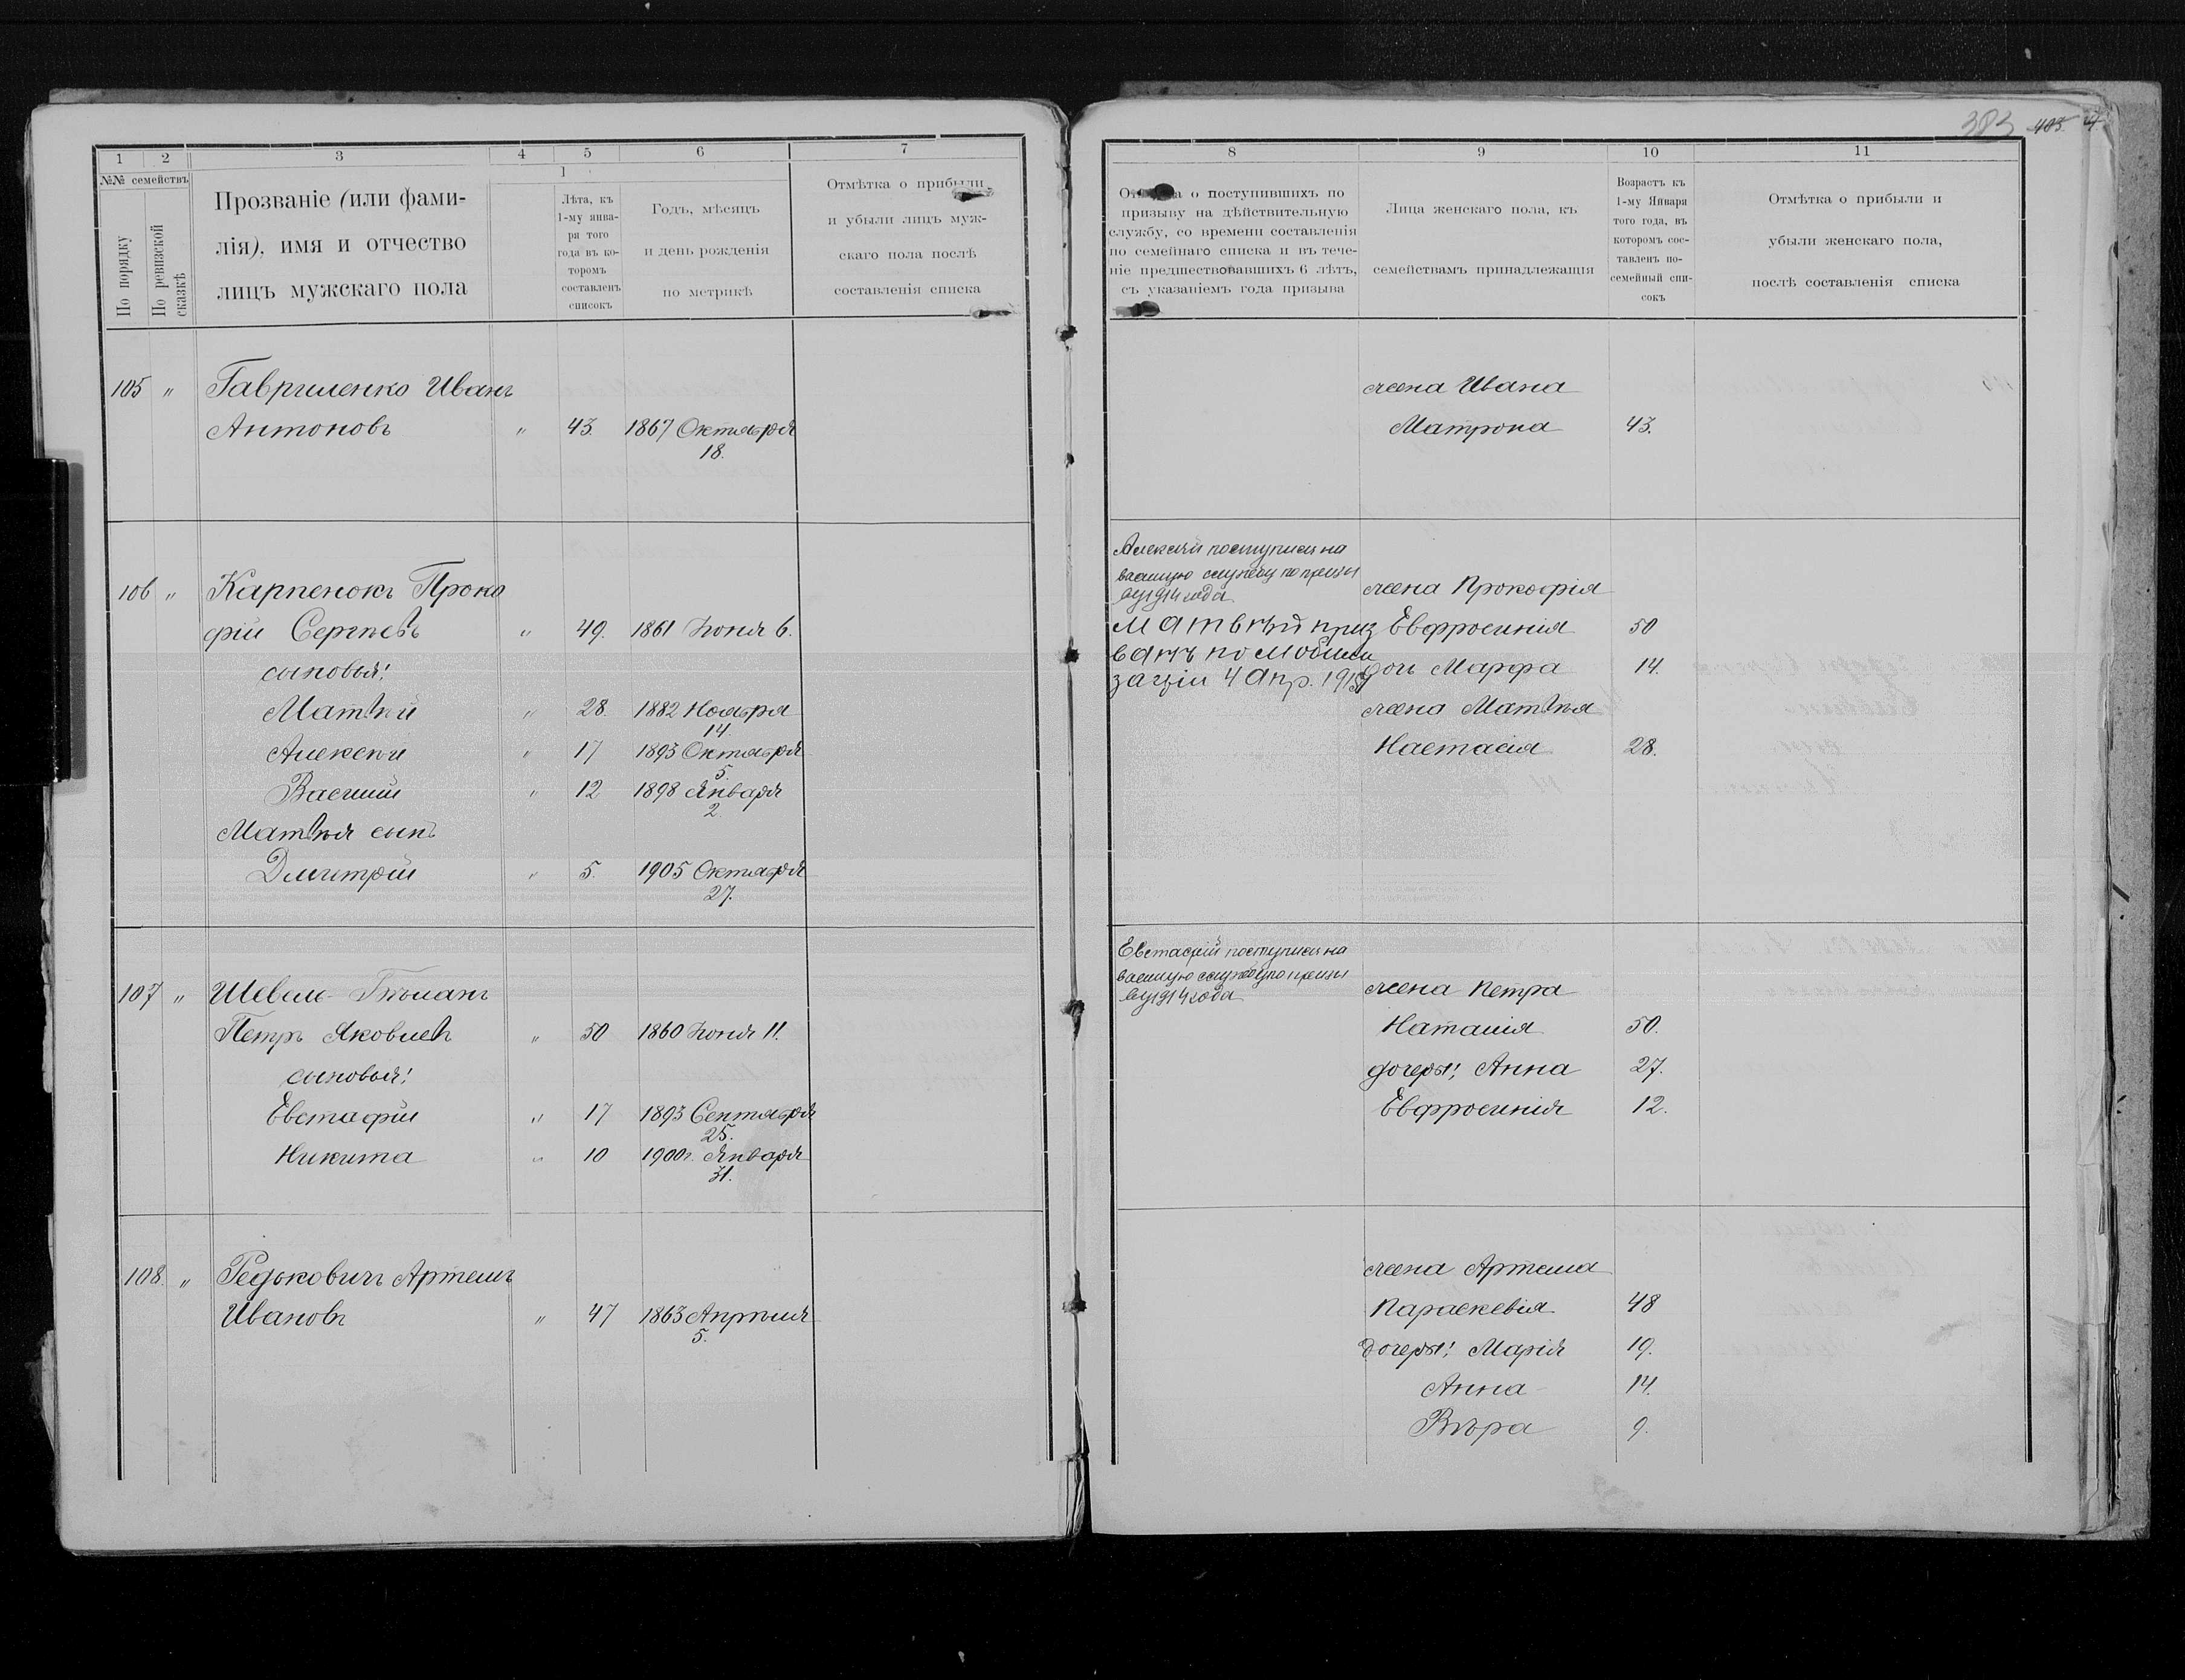 383 403.
1 2 3 4 5 6 7
№№ семействъ
По порядку
По ревизской сказкѣ
Прозваніе (или фами-
лія), имя и отчество
лицъ мужскаго пола
1
Лѣта, къ
1-му янва-
ря того
года въ ко-
торомъ
составленъ
списокъ
Годъ, мѣсяцъ
и день рожденія
по метрикѣ
Отмѣтка о прибыли
и убыли лицъ муж-
скаго пола послѣ
составленія списка
105 " Гавриленко Иванъ
Антоновъ " 43. 1867 Октября
18.
106 " Карпенокъ Проко
фій Сергѣевъ " 49. 1861 Іюня 6.
сыновья:
Матвѣй " 28. 1882 Ноября
14.
Алексѣй " 17 1893 Октября
5.
Василій " 12 1898 Января
2.
Матвѣя сынъ
Дмитрій " 5. 1905 Октября
27.
107 " Шевель-
Петръ Яковлевъ " 50 1860 Іюня 11.
сыновья:
Евстафій " 17 1893 Сентября
25.
Никита " 10 1900г. Января
31.
108 " Редьковичъ Артемъ
Ивановъ " 47 1863 Апрѣля
5.
8 9 10 11
о поступившихъ по
призыву на дѣйствительную
службу, со времени составленія
по семейнаго списка и въ тече-
ніе предшествовавшихъ 6 лѣтъ,
съ указаніемъ года призыва
Лица женскаго пола, къ
семействамъ принадлежащія
Возрастъ къ
1-му Января
того года, въ
которомъ сос-
тавленъ по-
семейный спи-
сокъ
Отмѣтка о прибыли и
убыли женскаго пола,
послѣ составленія списка
жена Ивана
Матрона 43.
Алексѣй поступилъ на
военную службу по призы
ву 1914 года.
Матвѣй приз
ванъ по мобили
заціи 4 Апр. 1915
жена Прокофія
Евфросинія 50
дочь Марфа 14.
жена Матвѣя
Настасія 28.
Евстафій поступилъ на
военную службу по призы
ву 1914 года
жена Петра
Наталія 50.
дочери: Анна 27.
Евфросинія 12.
жена Артема
Параскевія 48
дочери: Марія 19.
Анна 14.
Вѣра 9.